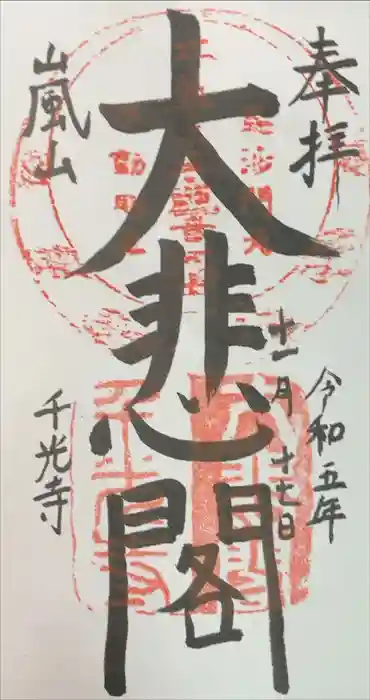 奉拝
令和五年
十一月十七日
大悲閣
嵐山
千光寺